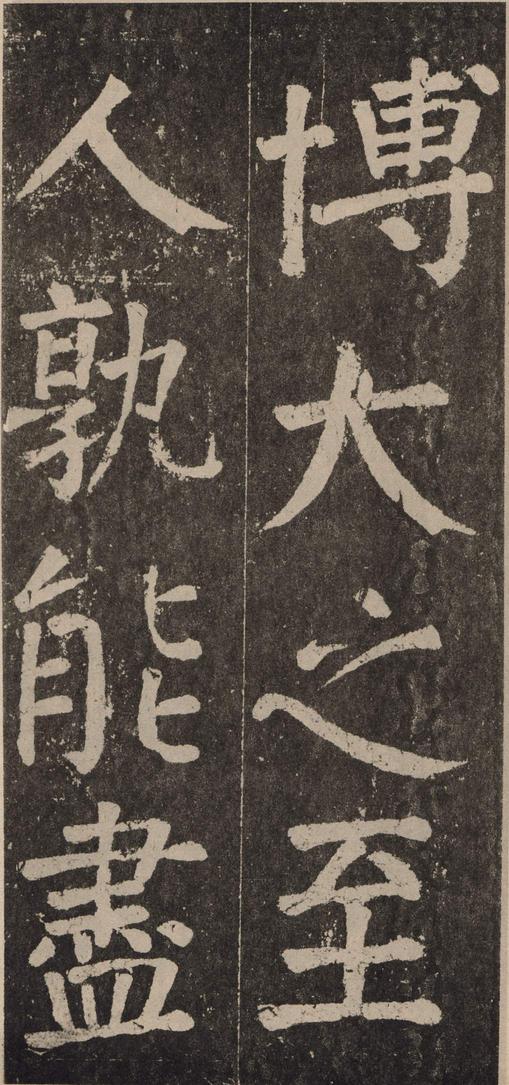 博大之至
人孰能盡